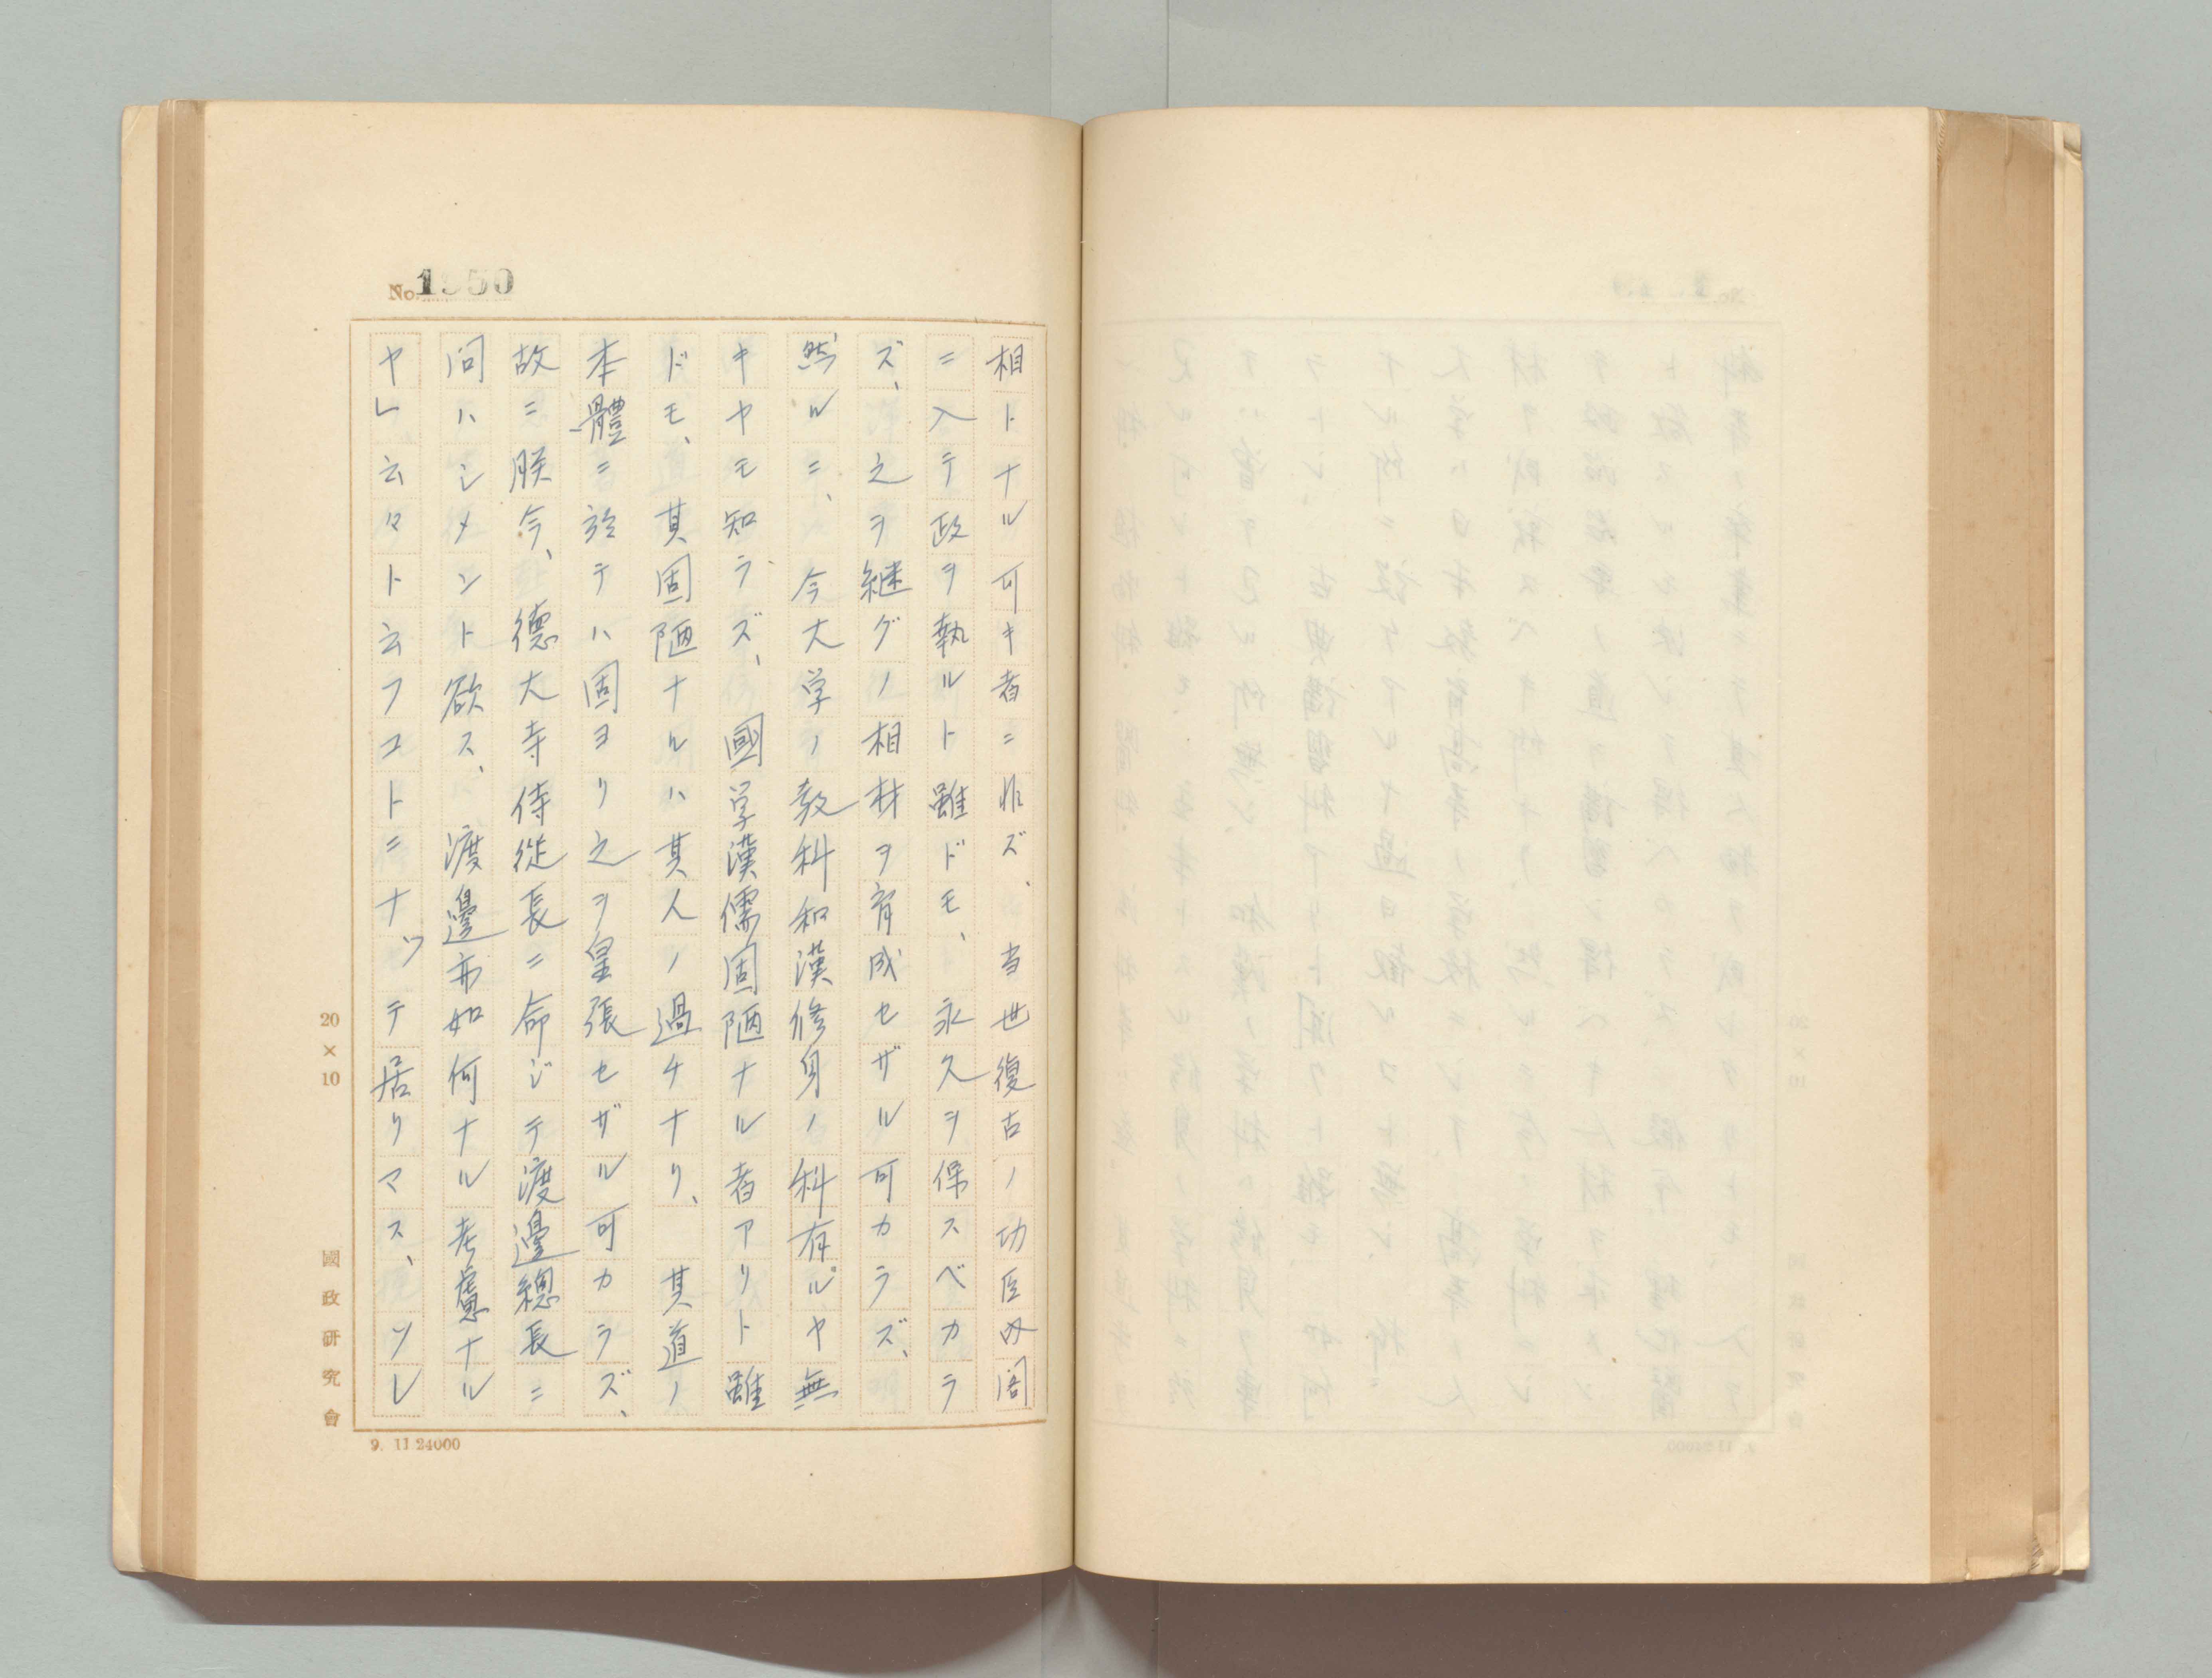 No. 1950
相トナル可キ者ニ非ズ、当世復古ノ功臣内閣
ニ入テ政ヲ執ルト雖ドモ、永久ヲ保スベカラ
ズ、之ヲ継グノ相材ヲ育成セザル可カラズ、
然ルニ、今大学ノ教科和漢修身ノ科有ルヤ無
キヤモ知ラズ、國学漢儒固陋ナル者アリト雖
ドモ、其固陋ナルハ其人ノ過チナリ、其道ノ
本體ニ於テハ固ヨリ之ヲ皇張セザル可カラズ、
故ニ朕今、徳大寺侍従長ニ命ジテ渡邊總長ニ
問ハシメント欲ス、渡邊亦如何ナル考慮ナル
ヤレ云々ト云フコトニナッテ居リマス、ソレ
20×10
國政研究會
9. 11 24000